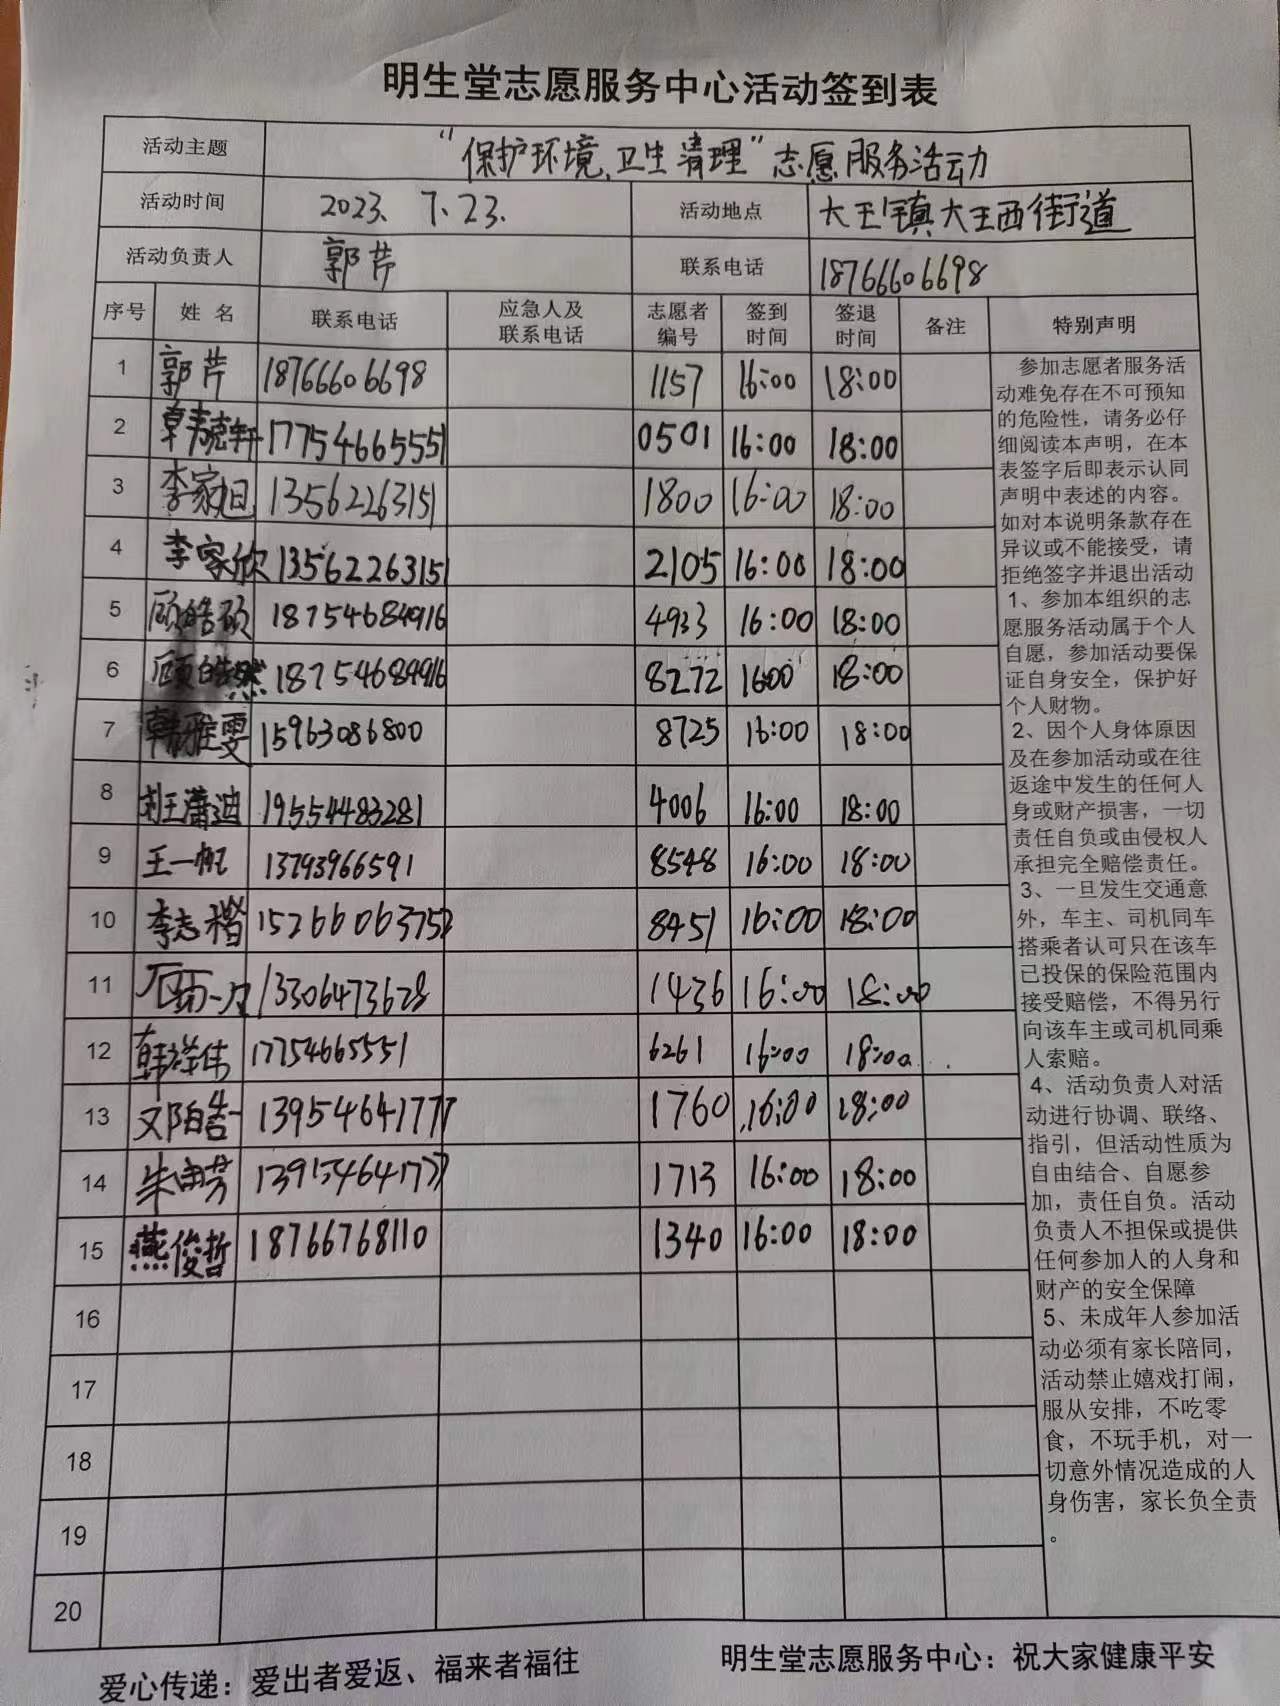 明生堂志愿服务中心活动签到表
活动主题 “保护环境、卫生清理”志愿服务活动
活动时间 2023. 7.23. 活动地点 大王镇大王西街道
活动负责人 郭芹 联系电话 18766606698
序号 姓名 联系电话 应急人及联系电话 志愿者编号 签到时间 签退时间 备注 特别声明
1 郭芹 18766606698 1157 16:00 18:00
2 韩克轩 17754665551 0501 16:00 18:00
3 李家旭 13562263151 1800 16:00 18:00
4 李家欣 13562263151 2105 16:00 18:00
5 顾皓硕 18754684916 4933 16:00 18:00
6 顾皓然 18754684916 8272 1600 18:00
7 韩雅雯 15963086800 8725 16:00 18:00
8 刘王潇迪 19554483281 4006 16:00 18:00
9 王一帆 13793966591 8548 16:00 18:00
10 李志楷 15266063752 8451 16:00 18:00
11 13306473628 1436 16:00 18:00
12 韩祥伟 17754665551 6261 16:00 18:00
13 邓皓一 13954641777 1760 16:00 18:00
14 朱雨芳 13954641777 1713 16:00 18:00
15 燕俊哲 18766768110 1340 16:00 18:00
16
17
18
19
20
参加志愿者服务活
动难免存在不可预知
的危险性，请务必仔
细阅读本声明，在本
表签字后即表示认同
声明中表述的内容。
如对本说明条款存在
异议或不能接受，请
拒绝签字并退出活动
1、参加本组织的志
愿服务活动属于个人
自愿，参加活动要保
证自身安全，保护好
个人财物。
2、因个人身体原因
及在参加活动或在往
返途中发生的任何人
身或财产损害，一切
责任自负或由侵权人
承担完全赔偿责任。
3、一旦发生交通意
外，车主、司机同车
搭乘者认可只在该车
已投保的保险范围内
接受赔偿，不得另行
向该车主或司机同乘
人索赔。
4、活动负责人对活
动进行协调、联络、
指引，但活动性质为
自由结合、自愿参
加，责任自负。活动
负责人不担保或提供
任何参加人的人身和
财产的安全保障
5、未成年人参加活
动必须有家长陪同，
活动禁止嬉戏打闹，
服从安排，不吃零
食，不玩手机，对一
切意外情况造成的人
身伤害，家长负全责
。
爱心传递：爱出者爱返、福来者福往 明生堂志愿服务中心：祝大家健康平安